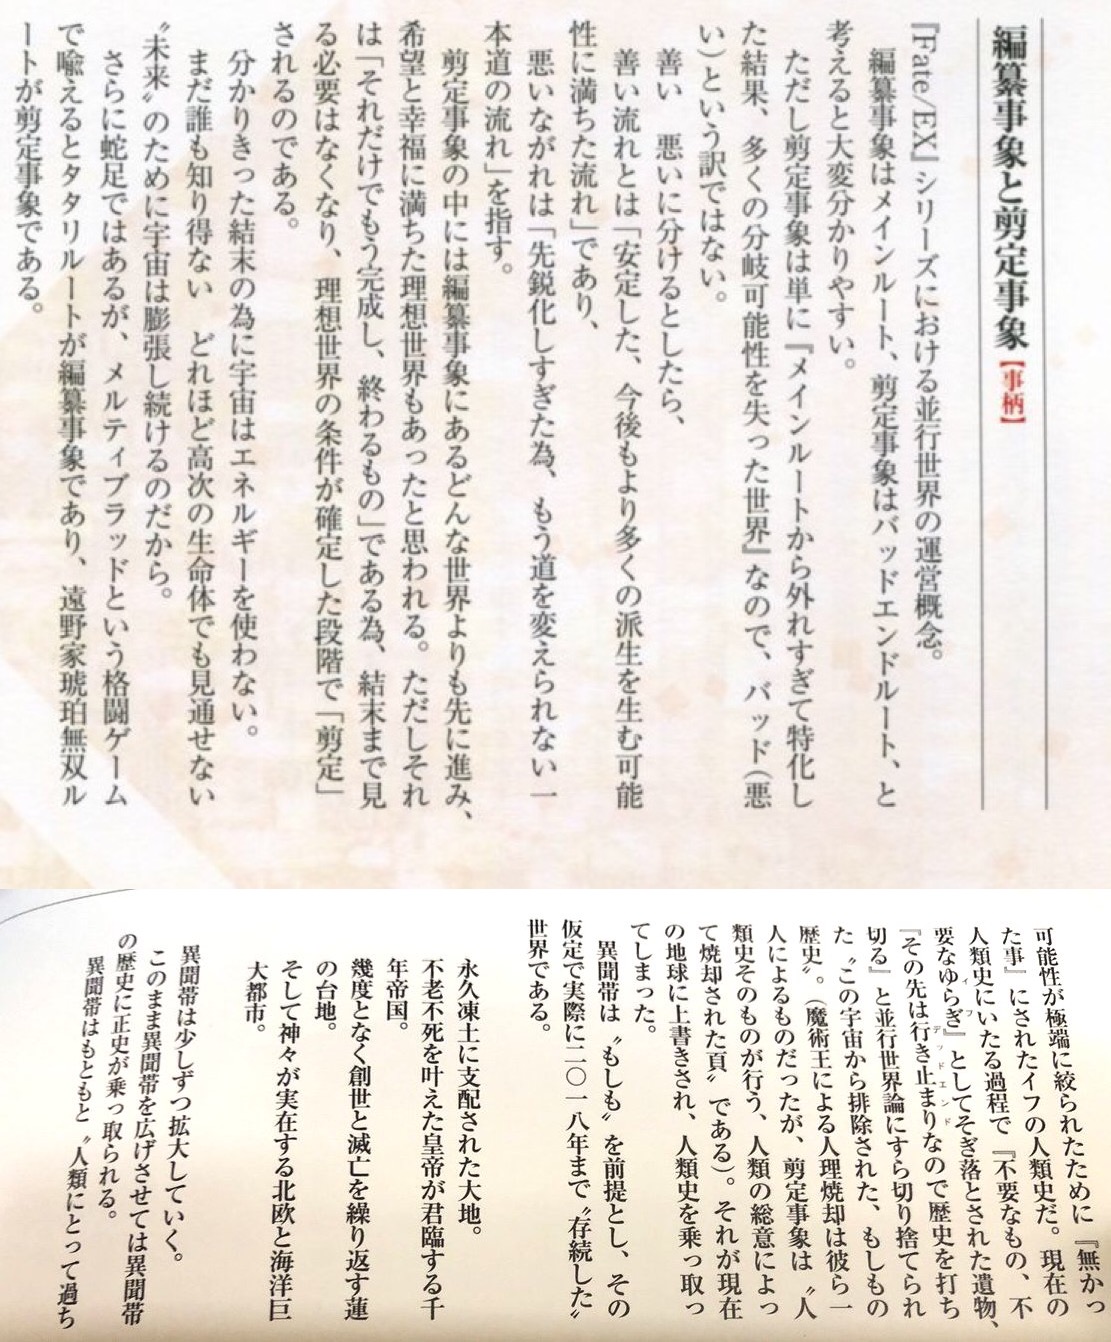 編纂事象と剪定事象【事柄】
『Fate/EX』シリーズにおける並行世界の運営概念。
編纂事象はメインルート、剪定事象はバッドエンドルート、と
考えると大変分かりやすい。
ただし剪定事象は単に『メインルートから外れすぎて特化し
た結果、多くの分岐可能性を失った世界』なので、バッド（悪
い）という訳ではない。
善い　悪いに分けるとしたら、
善い流れとは「安定した、今後もより多くの派生を生む可能
性に満ちた流れ」であり、
悪いながれは「先鋭化しすぎた為、もう道を変えられない一
本道の流れ」を指す。
剪定事象の中には編纂事象にあるどんな世界よりも先に進み、
希望と幸福に満ちた理想世界もあったと思われる。ただしそれ
は「それだけでもう完成し、終わるもの」である為、結末まで見
る必要はなくなり、理想世界の条件が確定した段階で「剪定」
されるのである。
分かりきった結末の為に宇宙はエネルギーを使わない。
まだ誰も知り得ない　どれほど高次の生命体でも見通せない
〝未来〟のために宇宙は膨張し続けるのだから。
さらに蛇足ではあるが、メルティブラッドという格闘ゲーム
で喩えるとタタリルートが編纂事象であり、遠野家琥珀無双ル
ートが剪定事象である。
可能性が極端に絞られたために『無かっ
た事』にされたイフの人類史だ。現在の
人類史にいたる過程で『不要なもの、不
要なゆらぎ』としてそぎ落とされた遺物、
『その先は行き止まりなので歴史を打ち
切る』と並行世界論にすら切り捨てられ
た〝この宇宙から排除された、もしもの
歴史〟。（魔術王による人理焼却は彼ら一
人によるものだったが、剪定事象は〝人
類史そのものが行う、人類の総意によっ
て焼却された頁〟である）。それが現在
の地球に上書きされ、人類史を乗っ取っ
てしまった。
異聞帯は〝もしも〟を前提とし、その
仮定で実際に二〇一八年まで〝存続した〟
世界である。
永久凍土に支配された大地。
不老不死を叶えた皇帝が君臨する千
年帝国。
幾度となく創世と滅亡を繰り返す蓮
の台地。
そして神々が実在する北欧と海洋巨
大都市。
異聞帯は少しずつ拡大していく。
このまま異聞帯を広げさせては異聞帯
の歴史に正史が乗っ取られる。
異聞帯はもともと〝人類にとって過ち